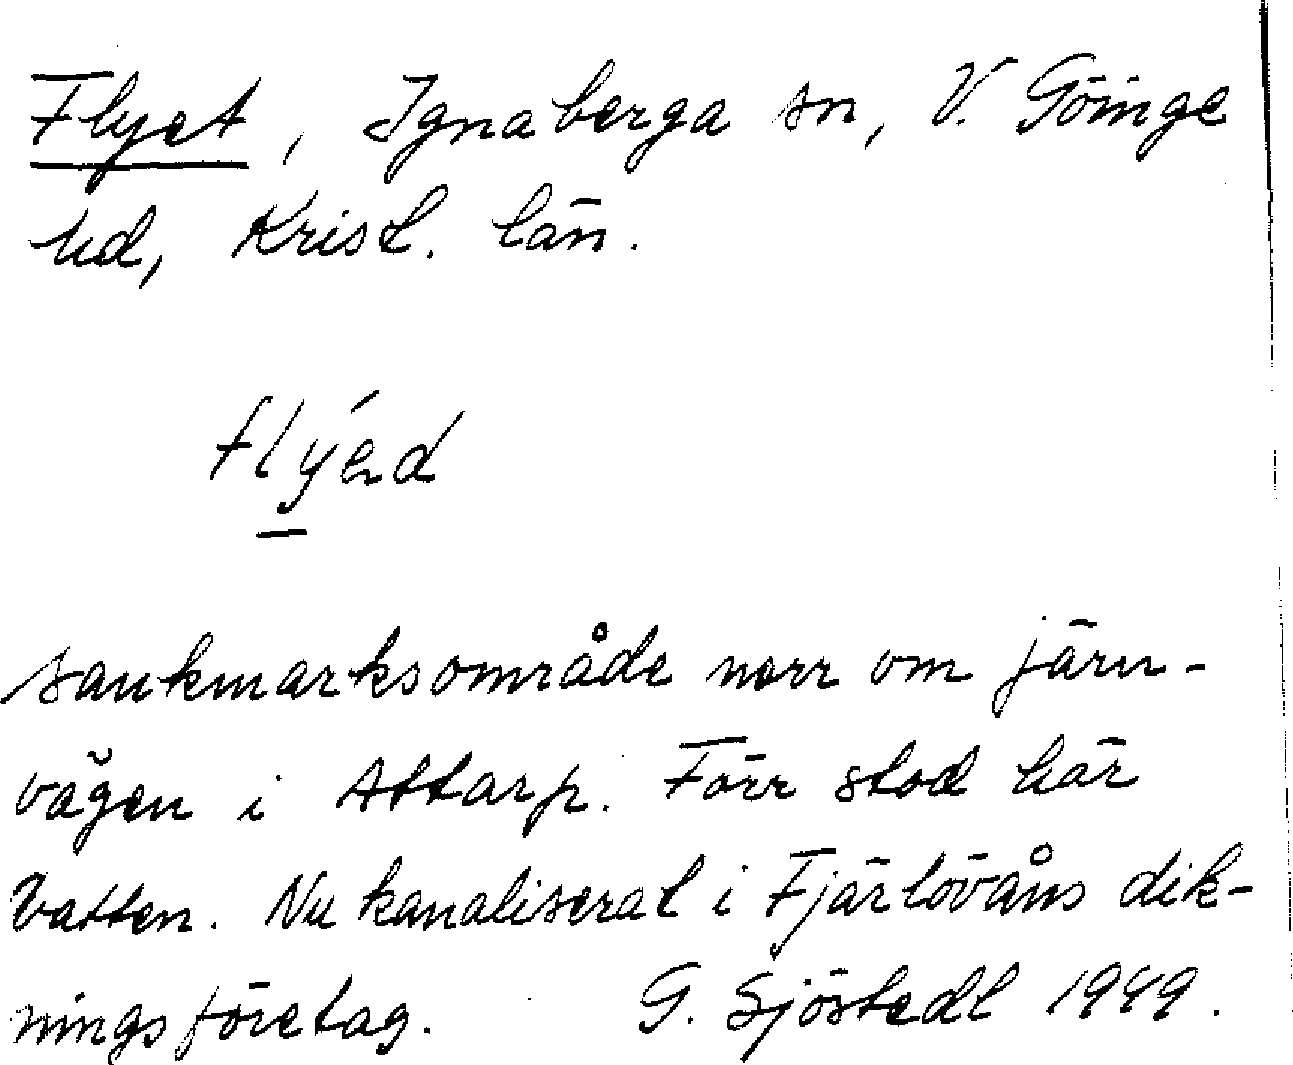 Flyet, Ignaberga sn, V. Göinge
hd, Krist. län.
flýəd
sankmarksområde norr om järn-
vägen i Attarp. Förr stod här
vatten. Nu kanaliserat i Fjärlövåns dik-
ningsföretag. G. Sjöstedt 1949.